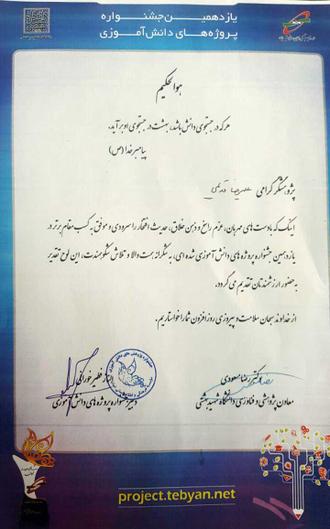 یازدهمین جشنواره
پروژه‌های دانش‌آموزی
هوالحکیم
هر که در جستجوی دانش باشد، بهشت در جستجوی او برآید.
پیامبر خدا (ص)
پژوهشگر گرامی علیرضا
اینک که با دست‌های مهربان، عزم راسخ و ذهن خلاق، حدیث افتخار را سرودی و موفق به کسب مقام برتر در
یازدهمین جشنواره پروژه‌های دانش آموزی شده‌ای، به شکرانه همت والا و تلاش شکوهمندت، این لوح تقدیر
به حضور ارزشمندتان تقدیم می‌گردد.
از خداوند سبحان سلامت و پیروزی روزافزون شما را خواستاریم.
دکتر رضا مسعودی
معاون پژوهشی و فناوری دانشگاه شهید بهشتی
دبیر جشنواره پروژه‌های دانش آموزی
project.tebyan.net